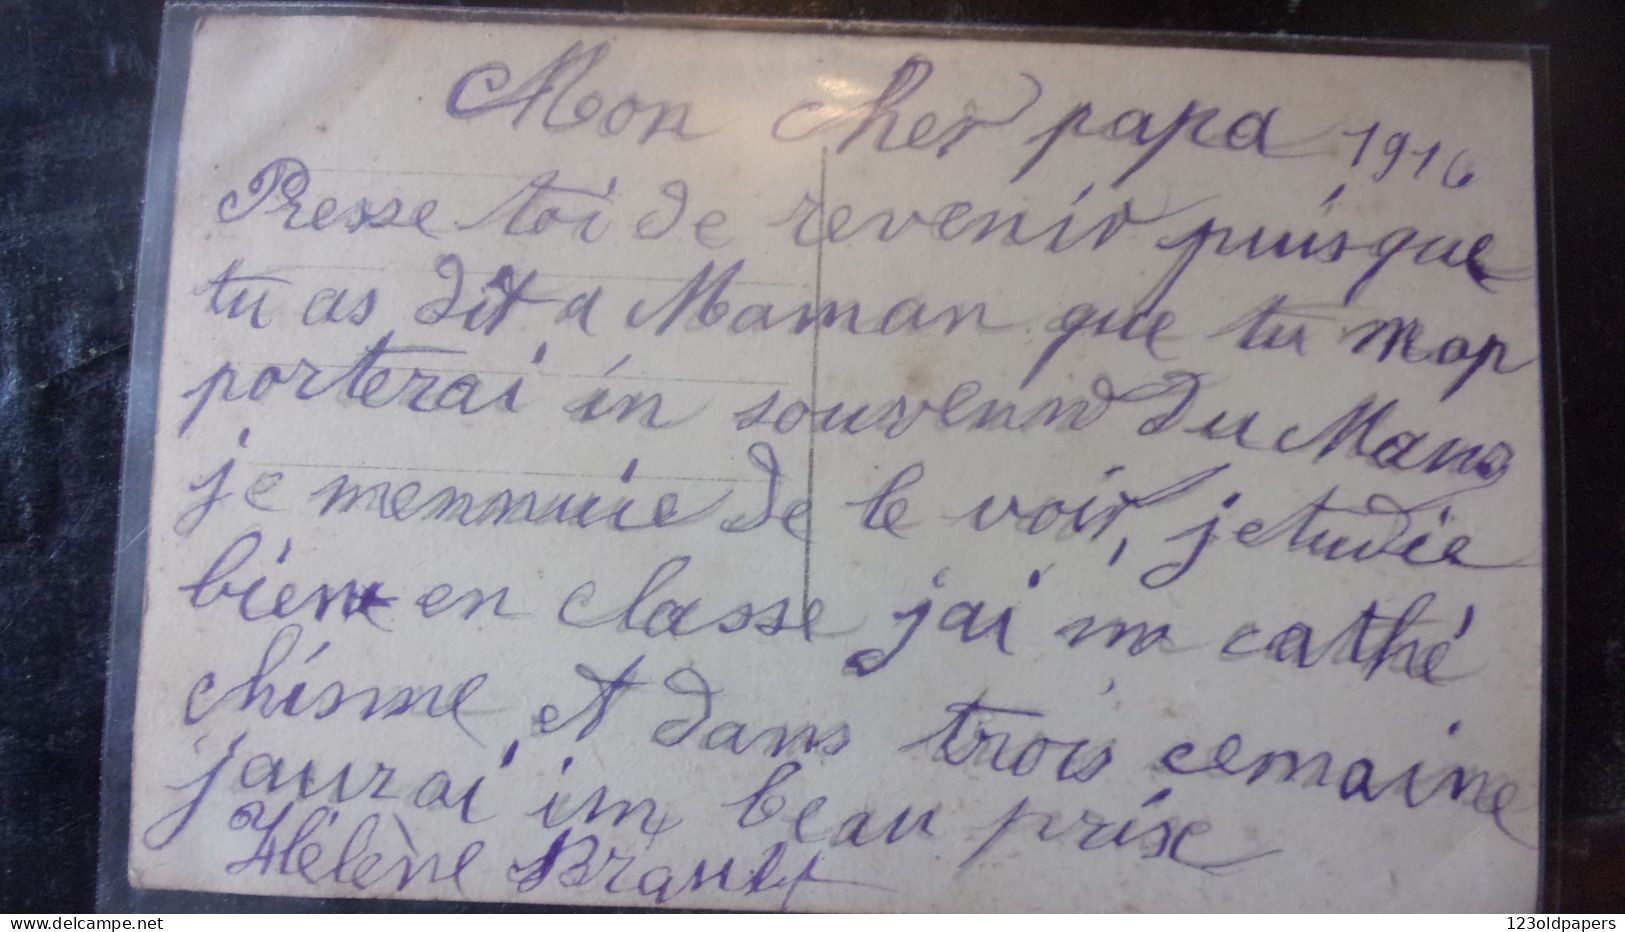 Mon cher papa 1916
Presse toi de revenir puisque
tu as dit a Maman que tu map
porterai in souvenir du Mans
je mennuie de le voir, jetudie
bien en classe jai un cathé
chisme et dans trois cemaine
jaurai im beau prix
Hélène Brault
123oldpapers